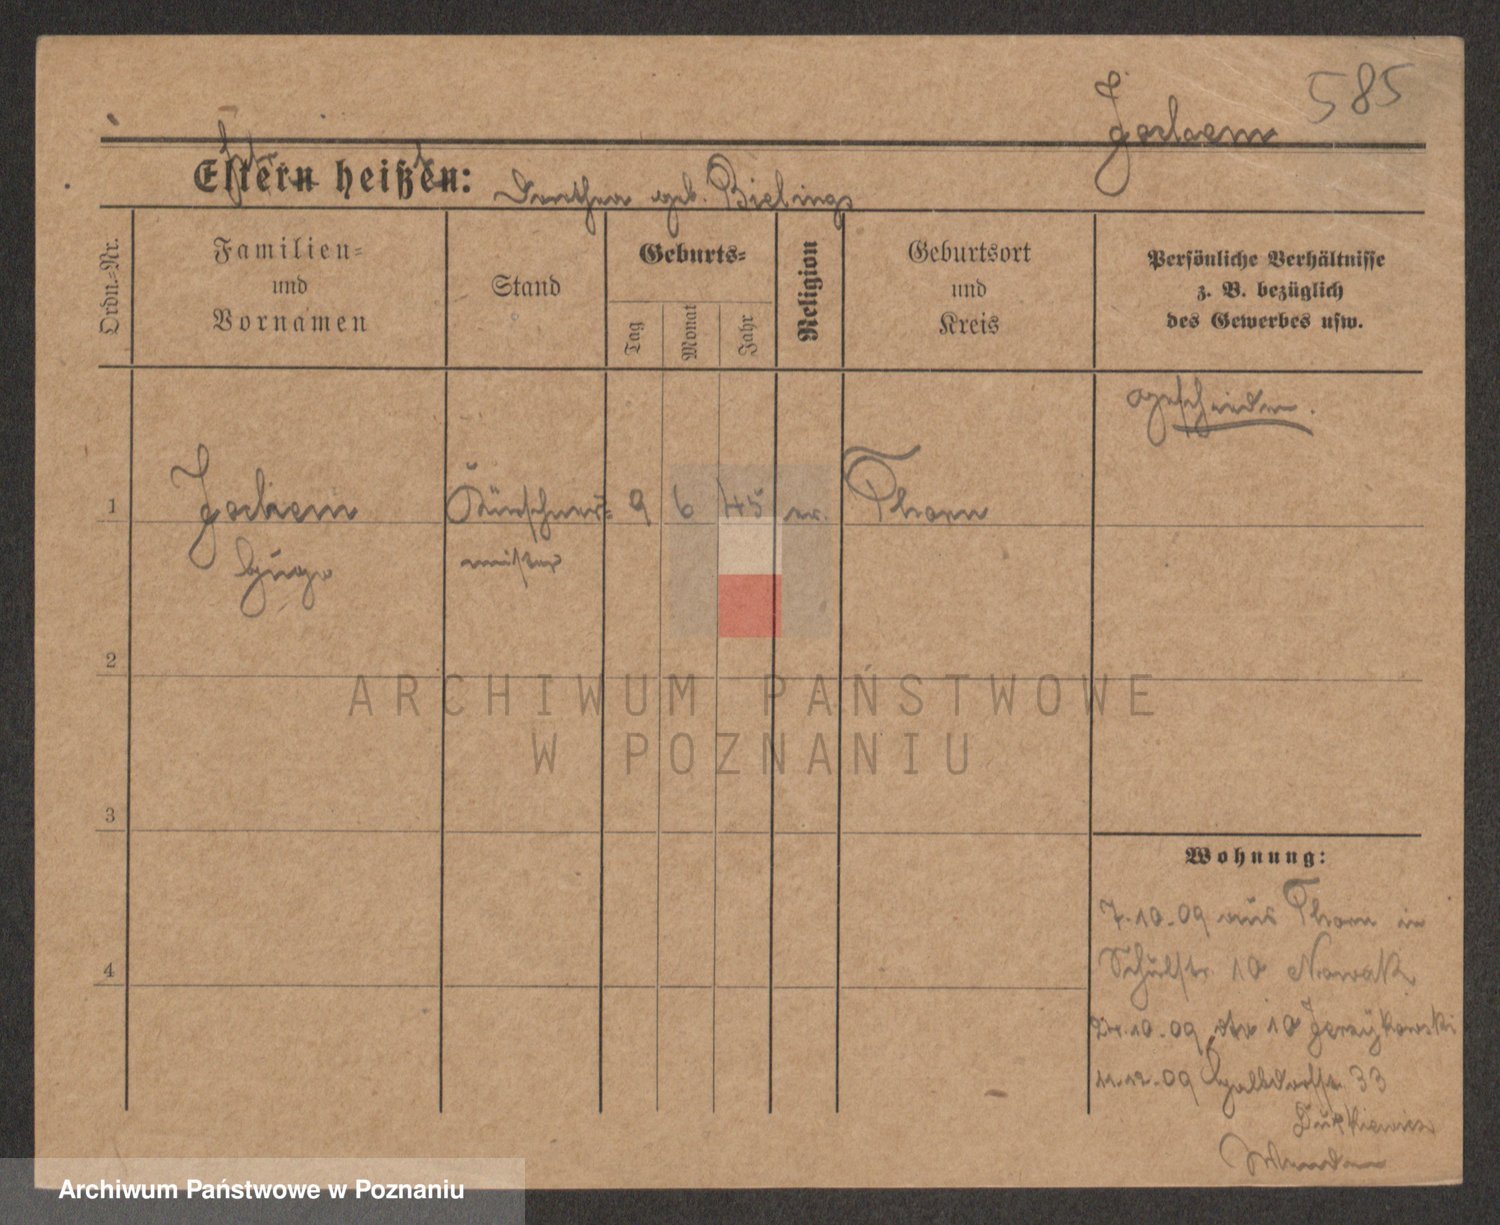 585
Jochem
Eltern heißen:
geb. Bielings
Ordn.-Nr.
Familien-
und
Vornamen
Stand
Geburts-
Tag
Monat
Jahr
Religion
Geburtsort
und
Kreis
Persönliche Verhältnisse
z. B. bezüglich
des Gewerbes usw.
geschieden.
1
Jochem
Hugo
Kürschner-
meister
9
6
45
ev.
Thorn
2
3
4
Wohnung:
7.10.09 aus Thorn in
Schulstr. 10 Nowak
10.09 10 Jerzykowski
11.12.09 Halbdorfstr. 33
Dutkiewicz
ARCHIWUM PAŃSTWOWE
W POZNANIU
Archiwum Państwowe w Poznaniu